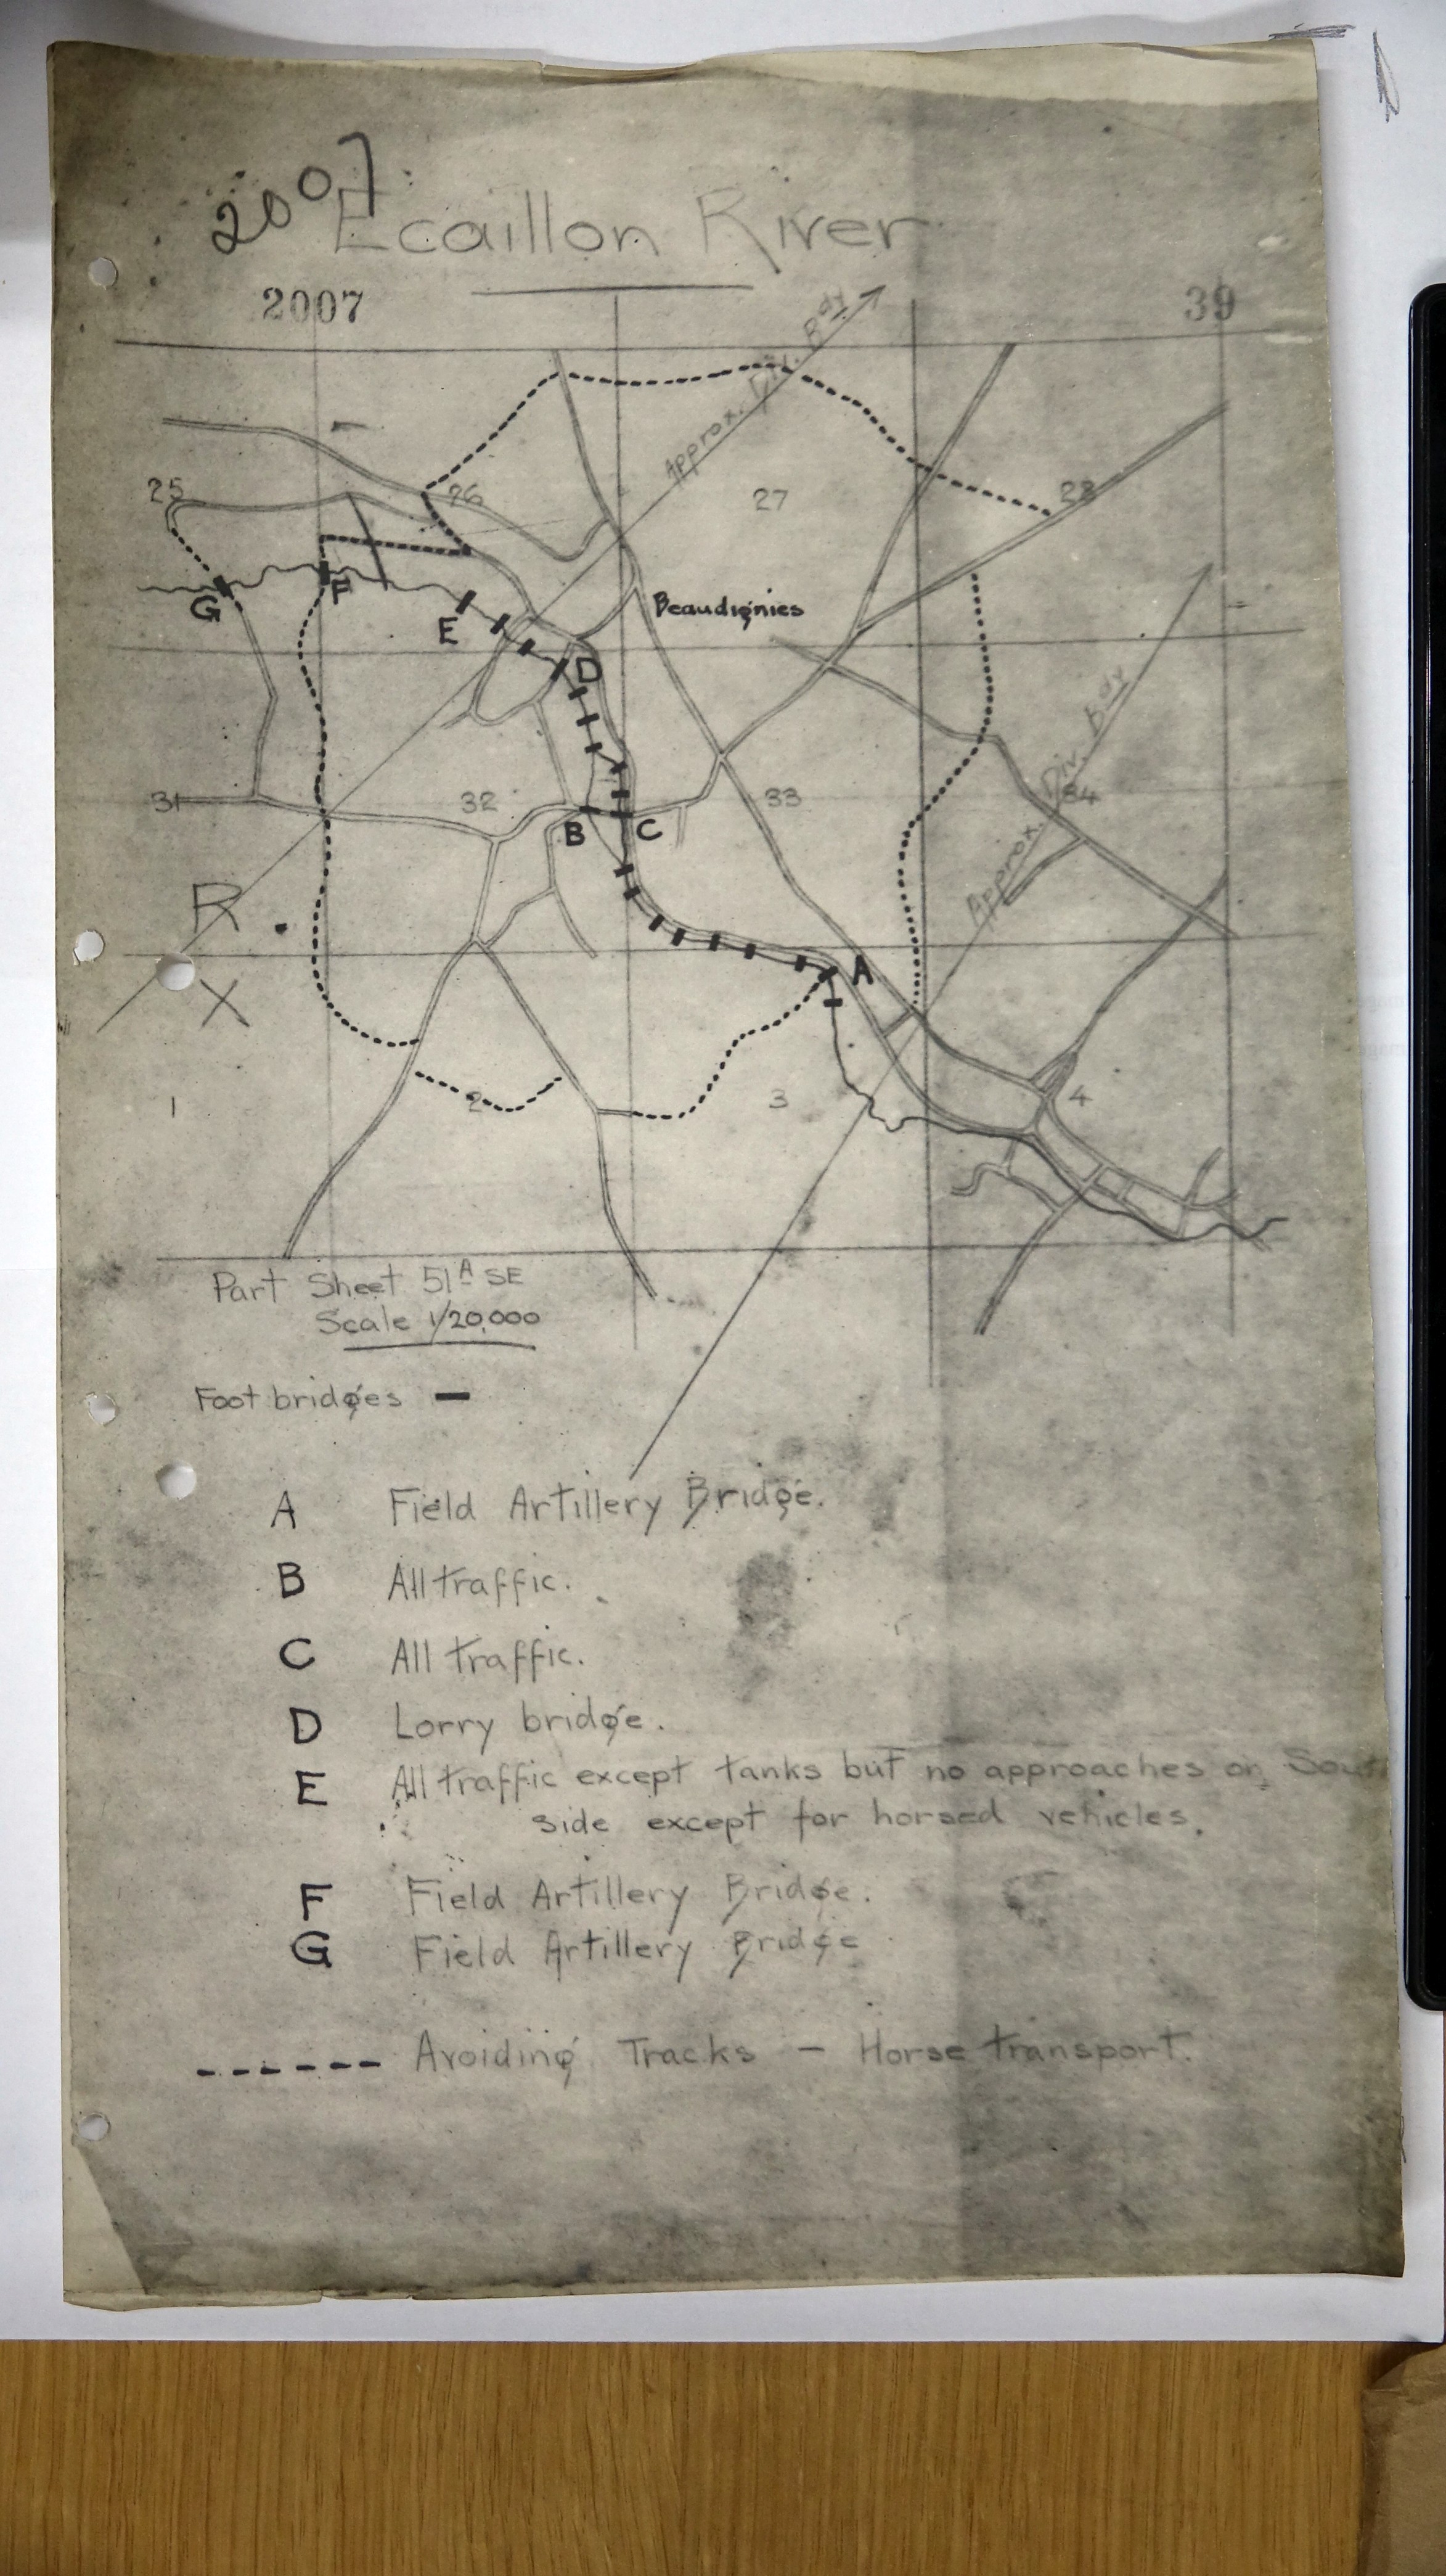 2007
Ecaillon River
2007
39
Approx. Div. Bdy
25
26
27
28
G
F
E
Beaudignies
D
Approx. Div. Bdy
31
32
33
34
B
C
R
A
X
1
2
3
4
Part Sheet 51A SE
Scale 1/20,000
Foot bridges
A Field Artillery Bridge.
B All traffic.
C All traffic.
D Lorry bridge.
E All traffic except tanks but no approaches on South
side except for horsed vehicles.
F Field Artillery Bridge.
G Field Artillery Bridge
Avoiding Tracks - Horse transport.